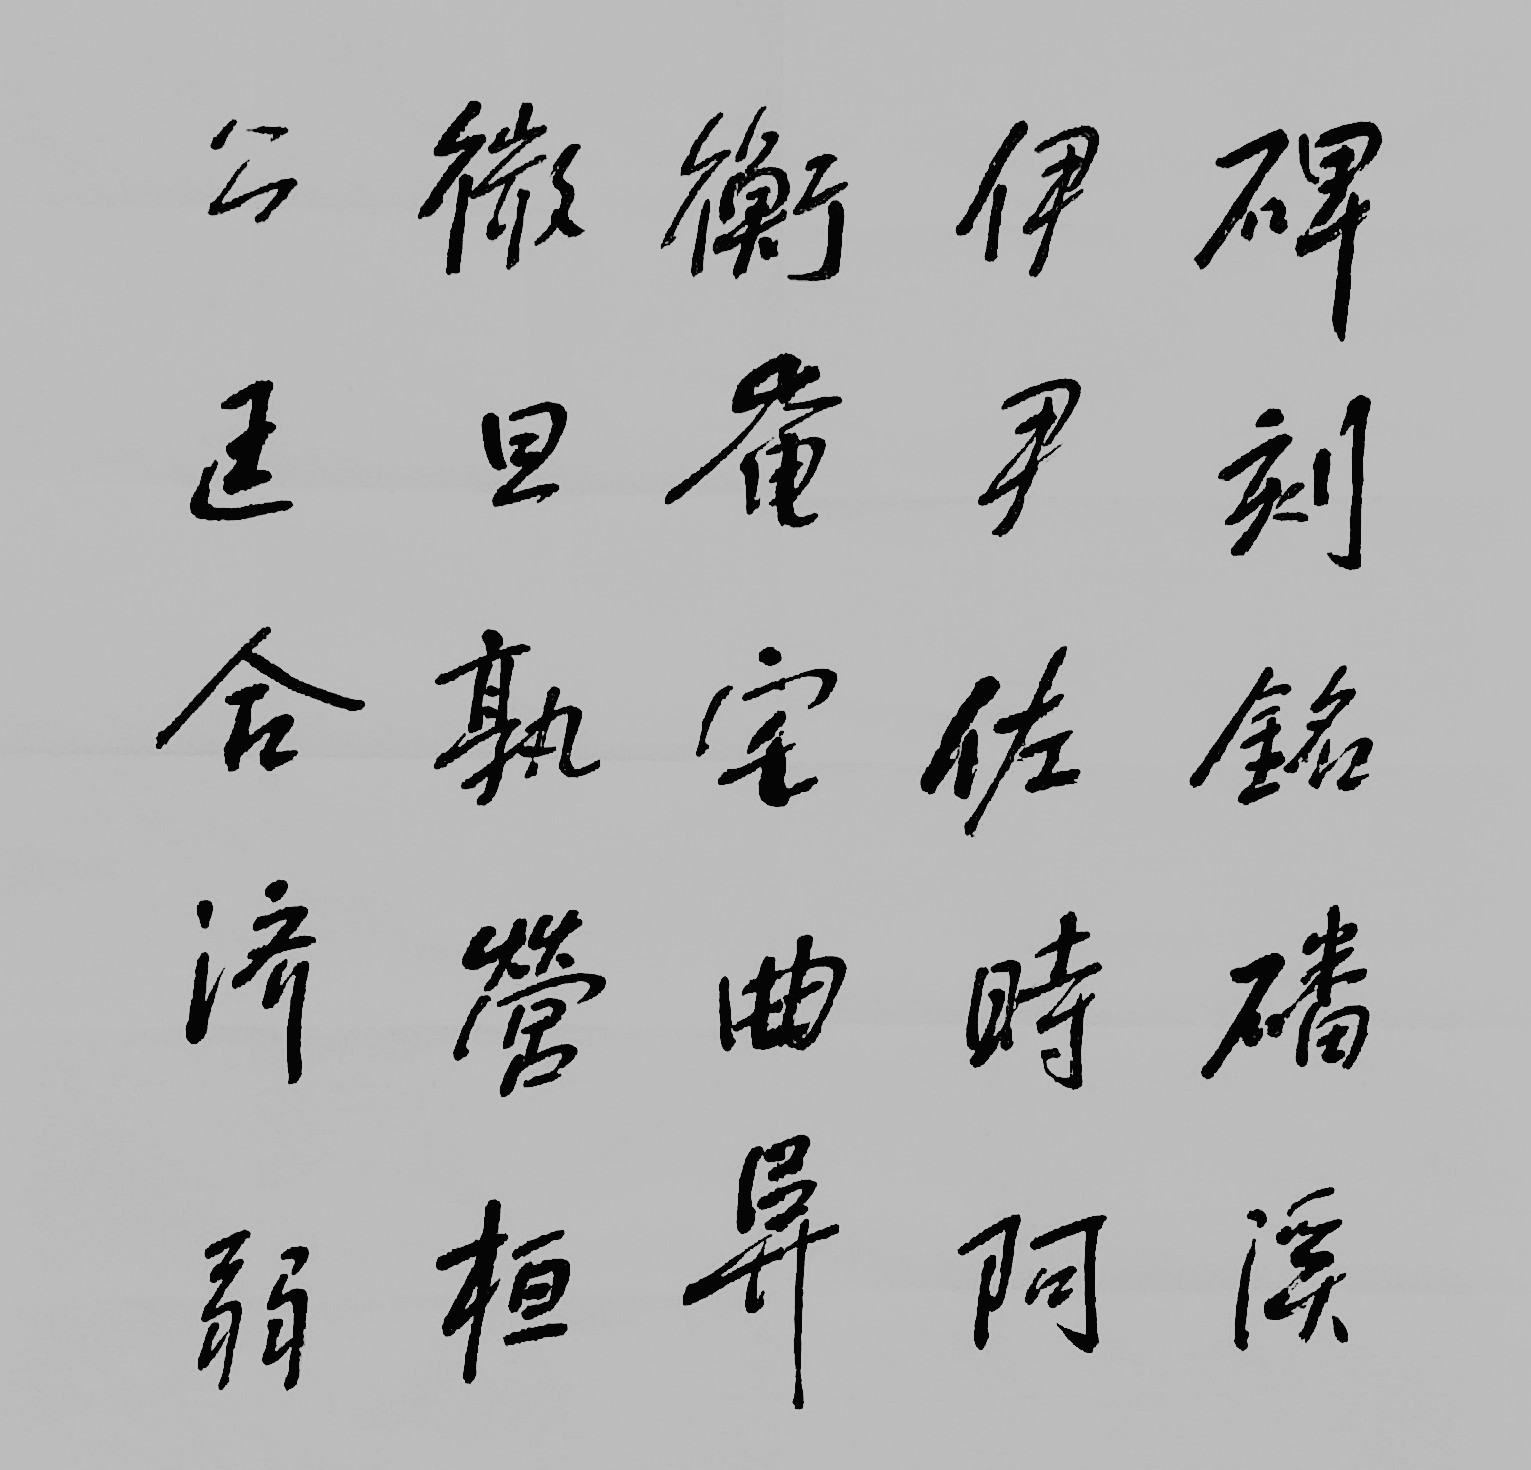 碑刻銘磻溪
伊尹佐時阿
衡奄宅曲阜
微旦孰營桓
公匡合济弱